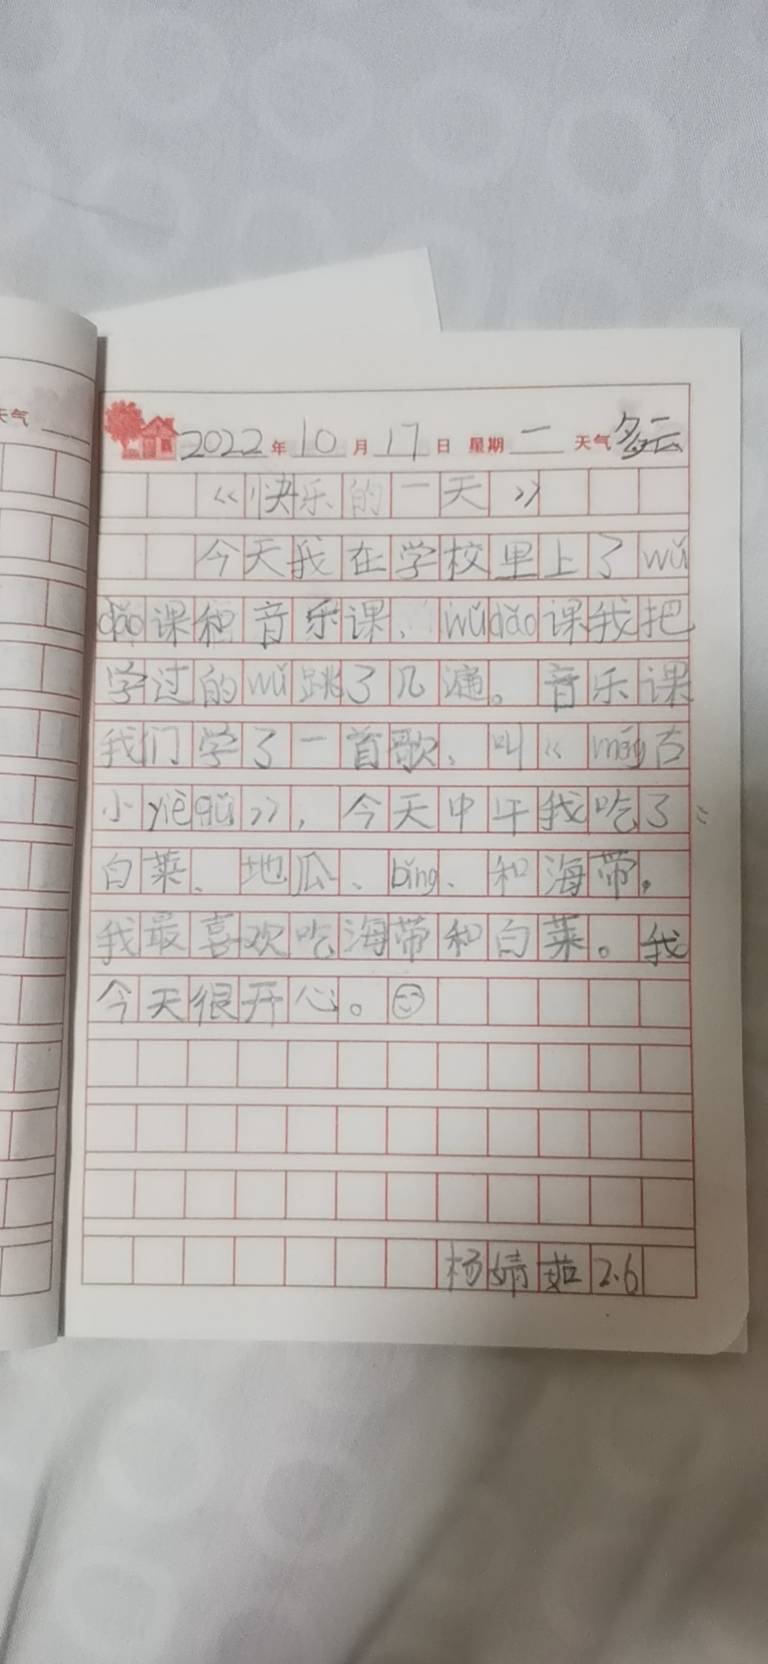 天气
2022年10月17日 星期一 天气多云
《快乐的一天》
今天我在学校里上了wǔ
dǎo课和音乐课、wǔdǎo课我把
学过的wǔ跳了几遍。音乐课
我们学了一首歌、叫《měng古
小yièqǔ》，今天中午我吃了：
白菜、地瓜、bǐng、和海带。
我最喜欢吃海带和白菜。我
今天很开心。
杨婧茹2.6